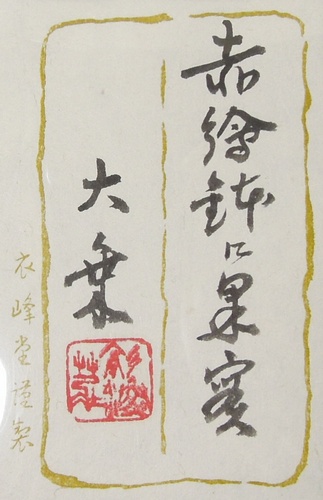 赤繪鉢に果實
大乗
衣峰堂謹製